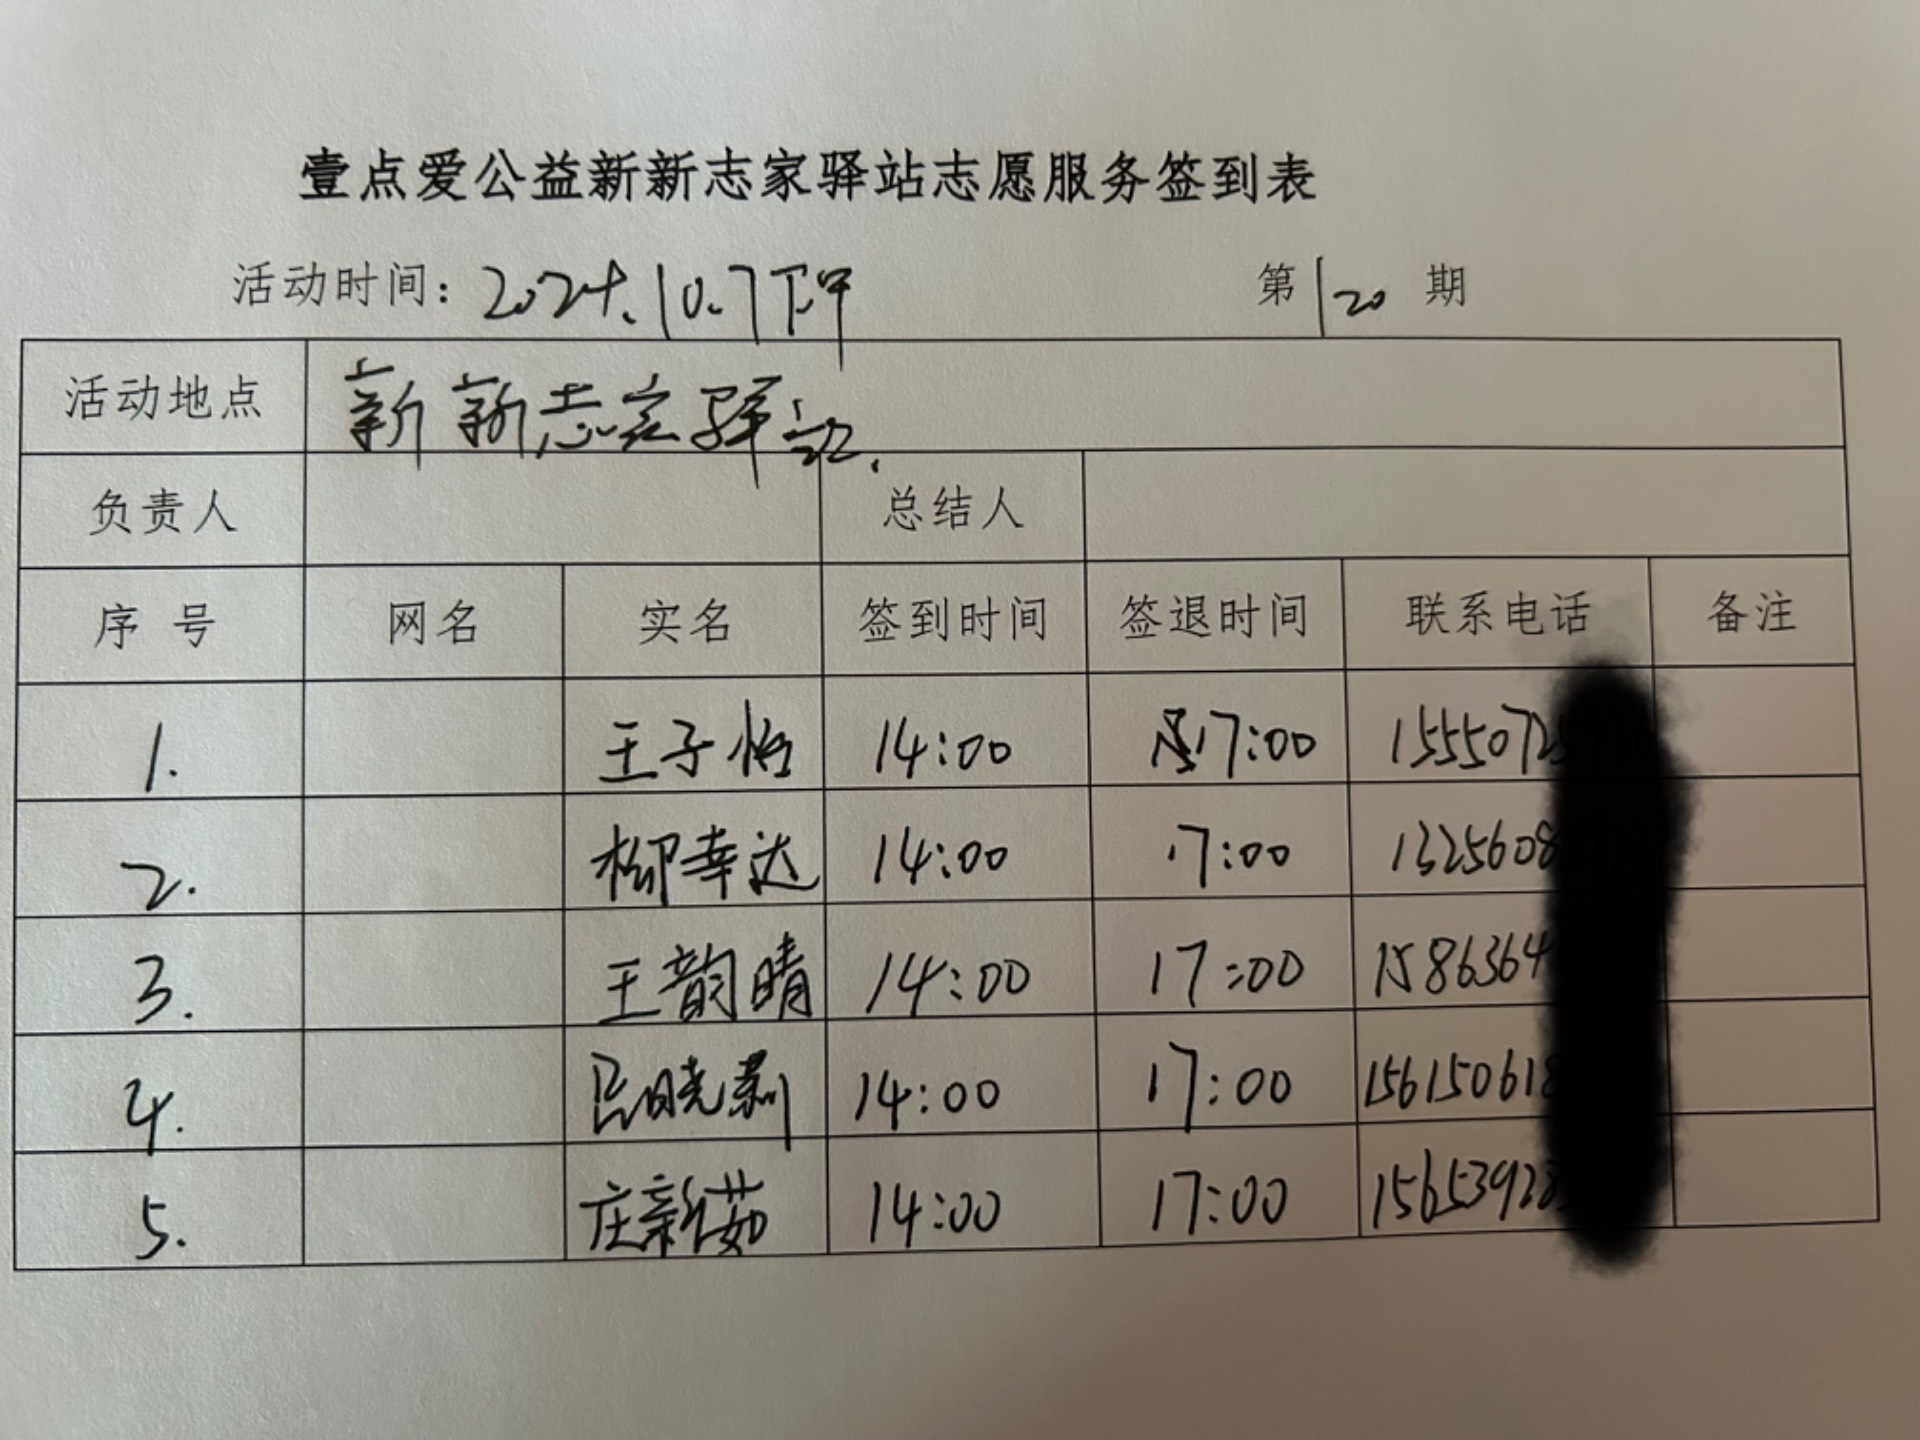 壹点爱公益新新志家驿站志愿服务签到表
活动时间：2024.10.7下午 第120期
活动地点 新新志家驿站.
负责人 总结人
序号 网名 实名 签到时间 签退时间 联系电话 备注
1. 王子怡 14:00 17:00 1555072
2. 柳幸达 14:00 17:00 1325608
3. 王韵晴 14:00 17:00 1586364
4. 晓莉 14:00 17:00 156150618
5. 庄新茹 14:00 17:00 15653923